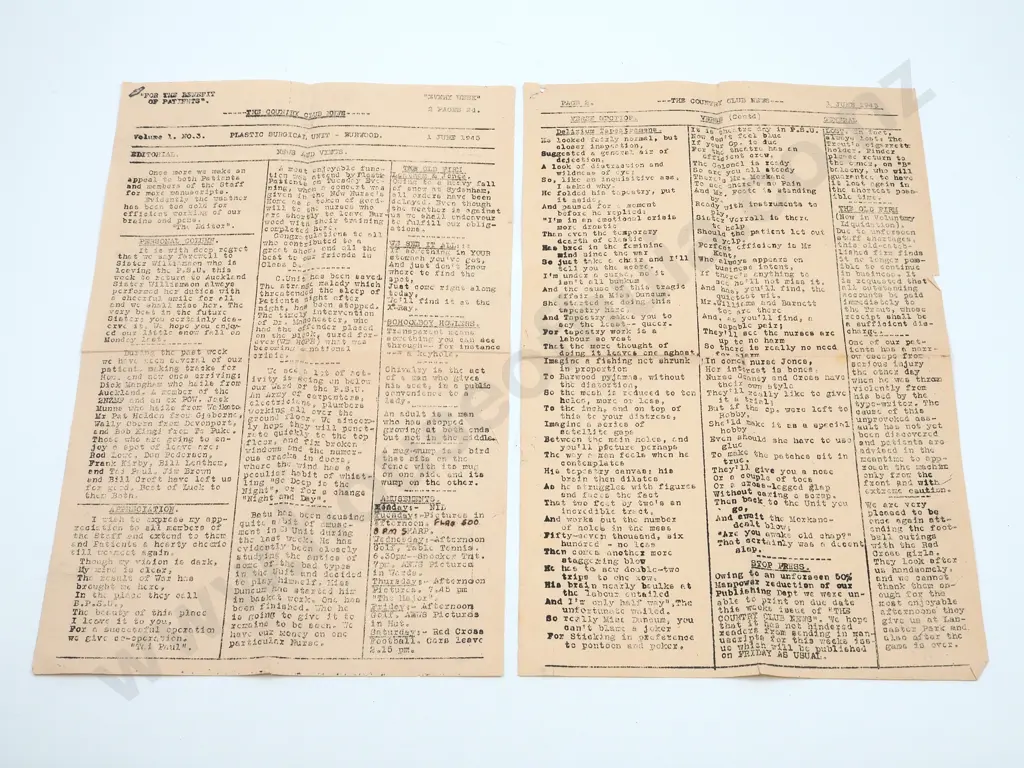 "FOR THE BENEFIT
OF PATIENTS".
"EVERY WEEK"
2 PAGES 2d.
-----THE COUNTRY CLUB NEWS-----
Volume 1. NO.3. PLASTIC SURGICAL UNIT - BURWOOD. 1 JUNE 1943
EDITORIAL.
Once more we make an
appeal to both Patients
and members of the Staff
for more manuscripts.
Evidently the weather
has been too cold for
efficient working of our
brains and pens.
"The Editor".
PERSONAL COLUMN.
It is with deep regret
that we say farewell to
Sister Williamson who is
leaving the P.S.U. this
week to return to Auckland
Sister Williamson always
performed her duties with
a cheerful smile for all
and we shall miss her. The
very best in the future
Sister; you certainly des-
erve it. We hope you enjoy-
ed our little snow fall on
Monday last.
During the past week
we have had several of our
patients making tracks for
Home and new ones arriving:
Dick Mangham who hails from
Auckland. A member of the
and an ex POW. Jack
Munne who hails from Waikato.
Mr Pat Holden from Gisborne;
Wally Owen from Devonport,
and Bob King; from Te Puke.
Those who are going to en-
joy a spot of leave are;
Rod Love, Due Pedersen,
Frank Kirby, Bill Lentham,
and Tai Paul. Jim Brown
and Bill Croft have left us
for good. Best of Luck to
them Both.
APPRECIATION.
I wish to express my app-
reciation to all members of
the Staff and extend to them
and Patients a hearty cheerio
till we meet again.
Though my vision is dark,
My mind is clear;
The result of War has
brought me here,
In the place they call
B.P.S.U.,
The beauty of this place
I leave it to you,
For a successful operation
we give co-operation.
"Tai Paul".
NEWS AND VIEWS.
A most enjoyable func-
tion was attend by Plastic
Patients on Tuesday Eve-
ning, when a concert was
given in the New Nurse's
Home as a token of good-
will to the nurses who
are shortly to leave Bur-
wood with their training
completed here.
Congratulations to all
who contributed to a
great show, and all the
best to our friends in
Class 8.
Unit has been saved
The strange melody which
threatened the sleep of
Patients night after
night, has been stopped.
The timely intervention
of Dr. Manchester, who
had the offender placed
on the hook, cured for-
ever (WE HOPE) what was
becoming a national
crisis.
We see a lot of act-
ivity is going on below
our ward of the P.S.U.
An Army of carpenters,
electricians, plumbers
working all over the
ground floor. We sincere-
ly hope they will penet-
rate quickly to the top
floor, and fix broken
windows and the numer-
ous cracks in doors,
where the wind has a
peculiar habit of whist-
ling "So Deep is the
Night", or for a change
"Night and Day".
Betu has been causing
quite a bit of amuse-
ment in our Unit during
the last week. He has
evidently been closely
studying the antics of
some of the bad types
in the Unit and decided
to play himself. Miss
Duncum has started him
on basket work. One has
been finished. Who he
is going to give it to
remains to be seen. We
have our money on one
particular Nurse.
THE OLD FIRM
Due to a heavy fall
of snow at Sydenham,
all orders have been
delayed. Even though
the weather is against
us we shall endeavour
to fulfill our oblig-
ations.
WE SEE IT ALL:
If something in YOUR
stomach you've got,
And just don't know
where to find the
spot,
Just come right along
today,
We'll find it at the
X-Ray.
SCHOOLBOY HOWLERS.
Transparent means
something you can see
through-- for instance
--a keyhole.
Chivalry is the act
of a man who gives
his seat in a public
convenience to a
lady.
An adult is a man
who has stopped
growing at both ends
but not in the middle.
A mug-wump is a bird
that sits on the
fence with its mug
on one side and its
wump on the other.
AMUSEMENTS.
Monday:- Nil
Tuesday:-Pictures in
afternoon. FLAG 500
8 PM SHARP.
Wednesday:-Afternoon
Golf, Table Tennis.
6.30pm--Snooker Tnt.
7pm. AWMS Pictures
in Wards.
Thursday:- Afternoon
Pictures, 7.45 pm
"The Major".
Friday:- Afternoon
Golf, AWMS Pictures
in Hut.
Saturday:- Red Cross
Football. Cars leave
2.15 pm.
PAGE 2. ---THE COUNTRY CLUB NEWS--- 1 JUNE 1943
VERSE SECTION.
Delirium Tapestramens.
He looked fairly normal, but
closer inspection,
Suggested a general air of
dejection.
A look of distraction and
wildness of eye;
So, like an inquisitive ass,
I asked why.
He folded his tapestry, put
it aside,
And paused for a moment
before he replied:
"I'm in an emotional crisis
more drastic
Than even the temporary
dearth of elastic
Has bred in the feminine
mind since the war
So just take a chair and I'll
tell you the score.
I'm under a curse, no it
isn't all bunkum
And the cause of this tragic
affair is Miss Duncum.
She started me doing this
tapestry here,
And Tapestry makes you to
say the least-- queer.
For tapestry work is a
labour so vast
That the more thought of
doing it leaves one aghast,
Imagine a fishing net shrunk
in proportion
To Burwood pyjama, without
the distortion,
So the mesh is reduced to ten
holes, more or less,
To the inch, and on top of
this to your distress;
Imagine a series of
satellite gaps
Between the main holes, and
you'll picture perhaps
The way a man feels when he
contemplates
His tapestry canvas; his
brain then dilates
As he struggles with figures
and faces the fact
That two feet by two's an
incredible tract,
And works out the number
of holes in the mesh
Fifty-seven thousand, six
hundred - no less
Then comes another more
staggering blow
He has to sew double-two
trips to one row,
His brain nearly baulks at
the labour entailed
And I'm only half way", The
unfortunate wailed.
So really Miss Duncum, you
can't blame a joker
For Sticking in preference
to pontoon and poker.
VERSE (Contd)
It is theatre day in P.S.U.
Now don't feel blue
If your Op. is due
For the theatre has an
efficient crew.
The Colonel is ready
So are you all steady
There's Mr. Markano
To see there's no Pain
And Mr. Foote is standing
by.
Ready with instruments to
ply.
Sister Verrall is there
to help
Should the patient let out
a yelp.
Perfect efficiency is Mr
Kent,
Who always appears on
business intent,
If there's anything to
see he'll not miss it.
And has, you'll find, the
quietest wit.
Mr. Williams and Barnett
too are there
And, as you'll find, a
capable pair;
They'll see the nurses are
up to no harm
So there is really no need
for alarm
In comes nurse Jones,
Her interest is bones.
Nurse Ganey and Cross have
their own style
They'll really like to give
it a trial;
But if the op. were left to
Robby,
She'ld make it as a special
hobby
Even should she have to use
glue
To make the patches sit in
true.
They'll give you a nose
Or a couple of toes
Or a cross-legged flap
Without caring a scrap.
Then back to the Unit you
go,
And await the Merkano-
dealt blow;
"Are you awake old chap?"
That certainly was a decent
slap.
STOP PRESS.
Owing to an unforseen 50%
Manpower reduction of our
Publishing Dept we were un-
able to print on due date
this weeks issue of "THE
COUNTRY CLUB NEWS". We hope
that it has not hindered
readers from sending in man-
uscripts for this weeks iss-
ue which will be published
on FRIDAY AS USUAL.
GENERAL
LOST. In fact,
always lost. The
Trout's cigarette
holder. Finder
please return to
the owner, on "B"
balcony, who will
guarantee to have
it lost again in
the shortest poss-
ible time.
THE OLD FIRM
(Now in Voluntary
Liquidation).
Due to unforseen
staff shortages,
this old-estab-
lished firm finds
it no longer poss-
ible to continue
in business. It
is requested that
all outstanding
accounts be paid
immediately to
the Trout, whose
receipt shall be
a sufficient dis-
charge.
One of our pat-
ients had a narr-
ow escape from
serious injury
the other day
when he was thrown
violently from
his bed by the
type-writer. The
cause of this
unprovoked ass-
ault has not yet
been discovered
and patients are
advised in the
meantime to app-
roach the machine
only from the
front and with
extreme caution.
We are very
pleased to be
once again att-
ending the foot-
ball outings with
the Red
Cross girls.
They look after
us handsomely;
and we cannot
thank them en-
ough for the
most enjoyable
afternoons they
give us at Lan-
caster Park and
also after the
game is over.